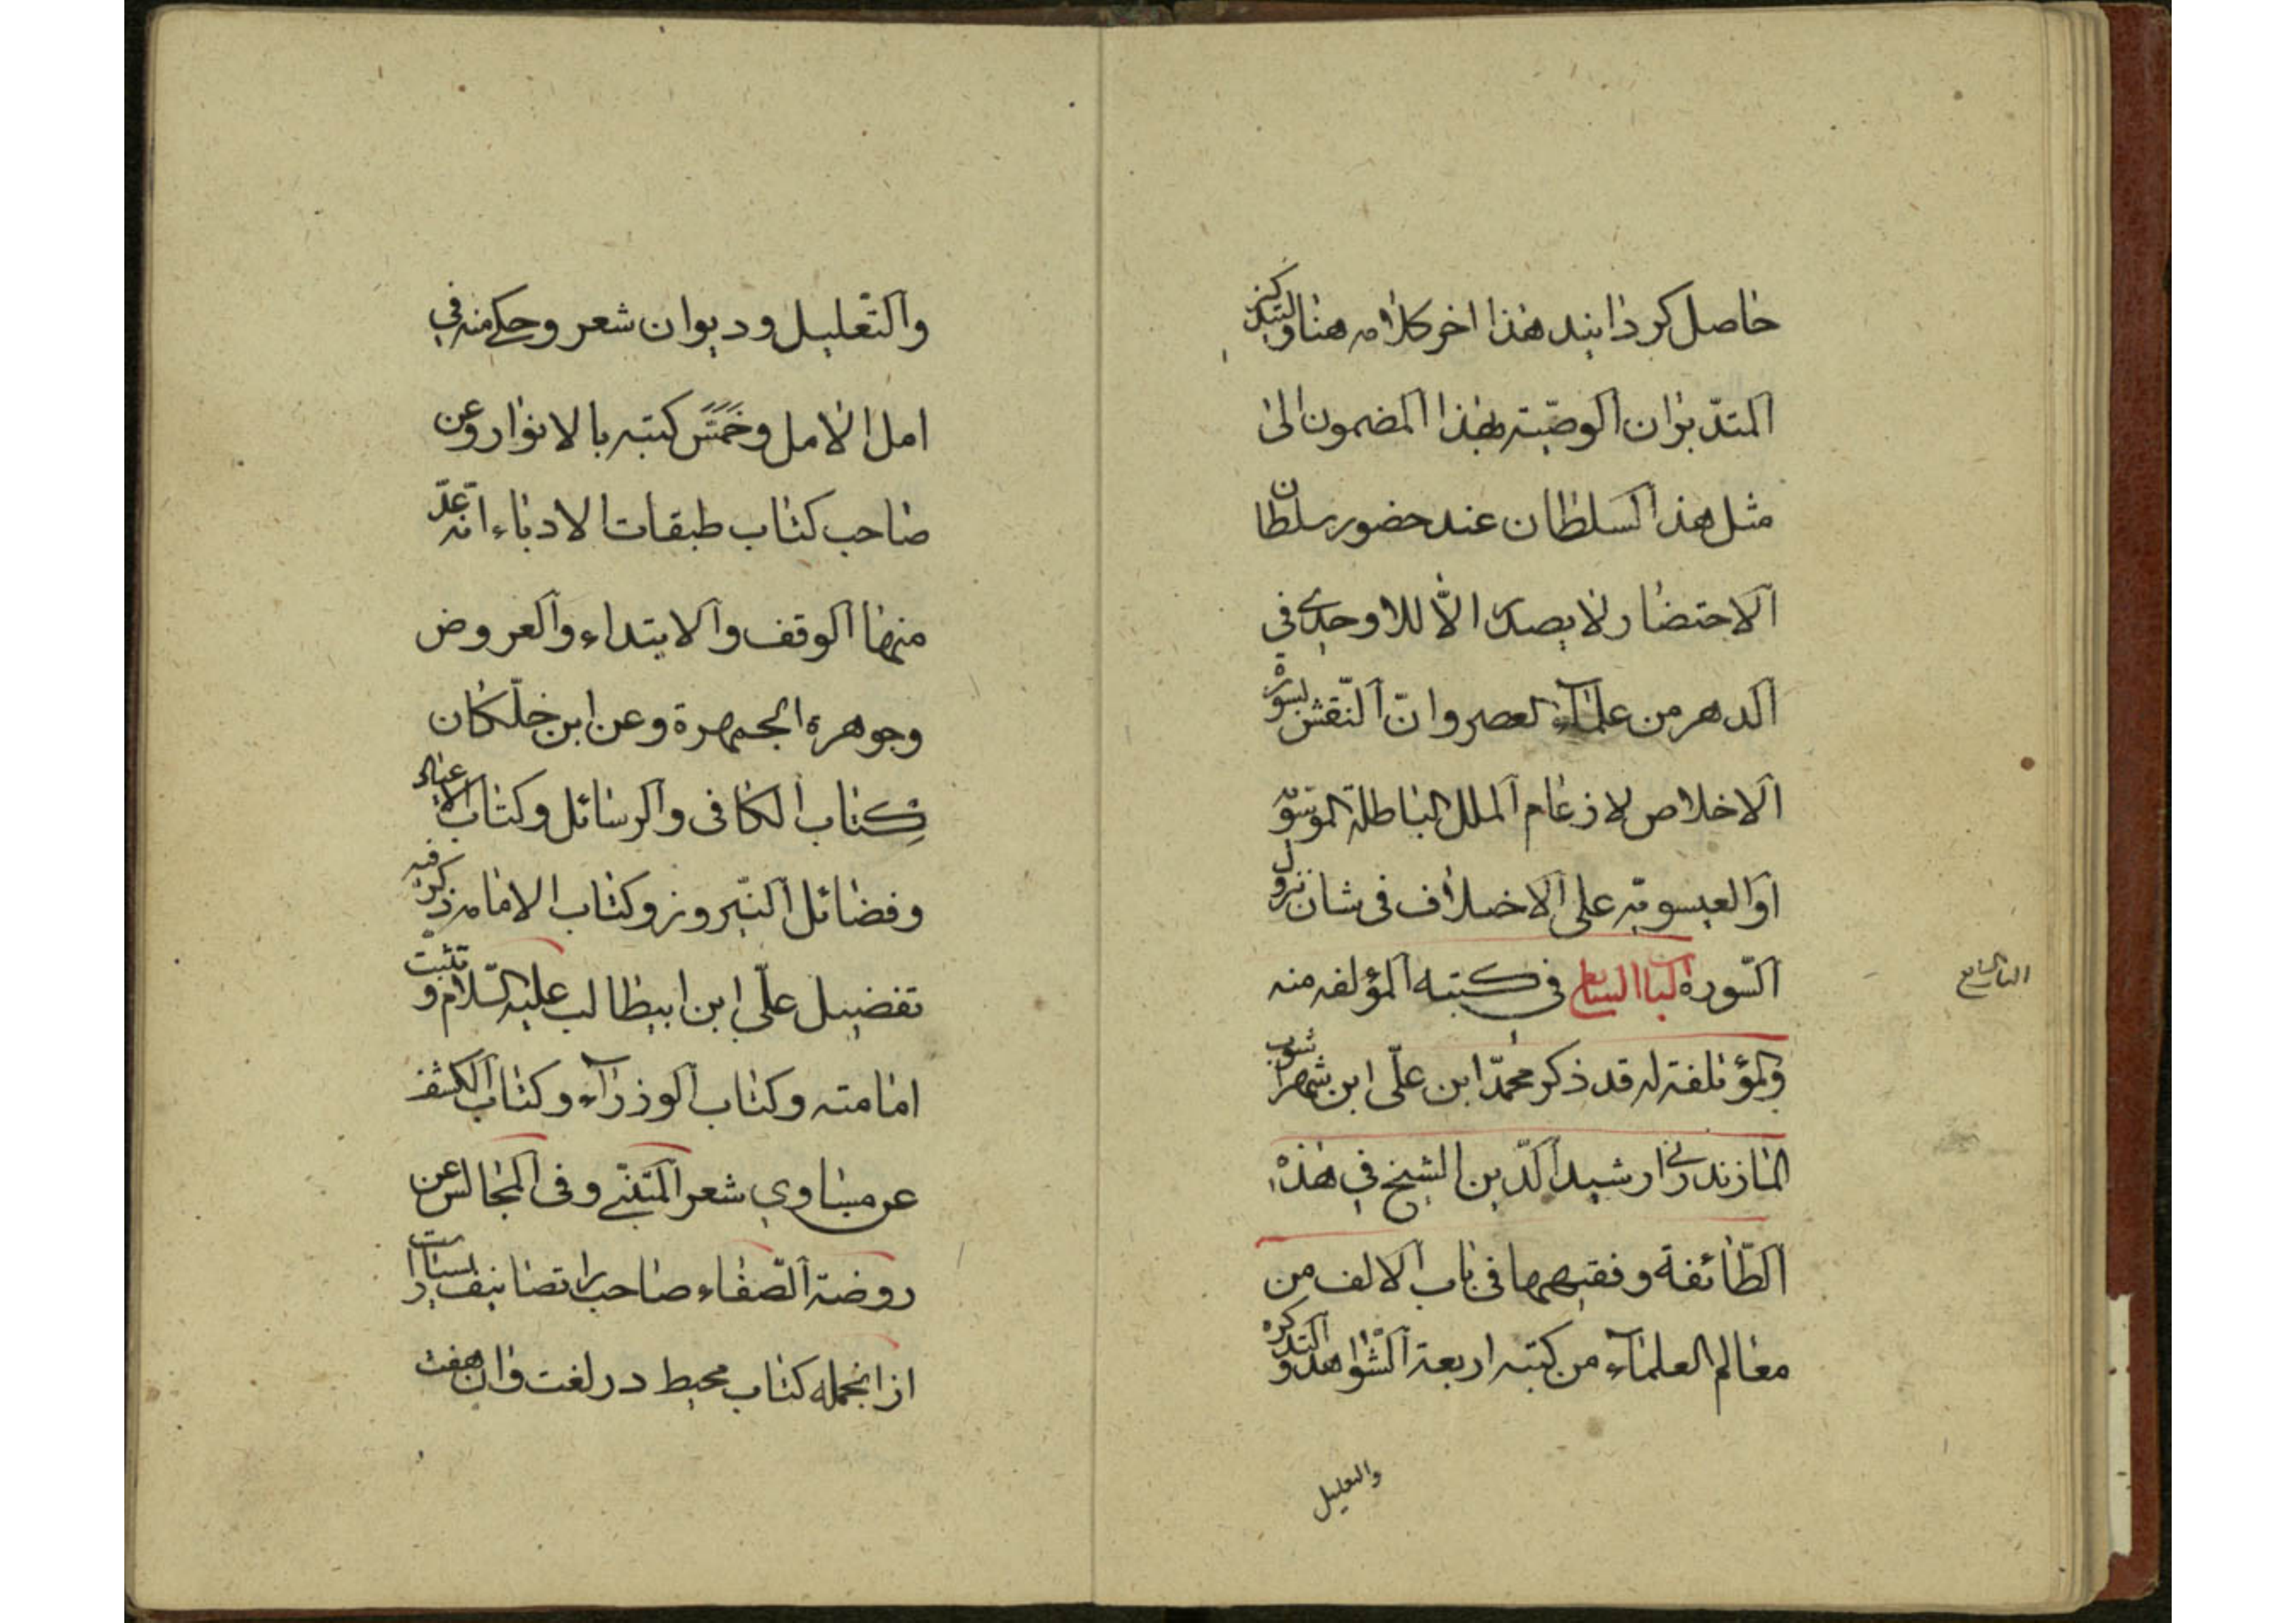 حاصل کردانید هذا اخر کلامه هنا والتبکر
المتدبران الوصیته بهذا المضمون الی
مثل هذا السلطان عند حضور سلطان
الاحتضار لا یصدر الا للاوحدی فی
الدهر من علماء العصر وان النقش بسورة
الاخلاص لارغام الملل الباطلة الموسویة
او العیسویه علی الاختلاف فی شان نزول
السورة الباب السابع فی کتبه المؤلفه منه
الباب السابع
والمؤتلفته له قد ذکر محمد ابن علی ابن شهراشوب
المازندرانی رشید الدین الشیخ فی هذه
الطائفة وفقیهها فی باب الالف من
معالم العلماء من کتبه اربعة الشواهد والتذکره
والتعلیل
والتعلیل ودیوان شعر وحکی منه فی
امل الامل وخمس کتبه بالانوار وعن
صاحب کتاب طبقات الادباء انه عد
منها الوقف والابتداء والعروض
وجوهرة الجمهرة وعن ابن خلکان
کتاب الکافی والرسائل وکتاب الاعیاد
وفضائل النیروز وکتاب الامامه ذکر فیه
تفضیل علی ابن ابیطالب علیه السلام وتثبت
امامته وکتاب الوزراء وکتاب الکشف
عن مساوی شعر المتنبی وفی المجالس عن
روضة الصفاء صاحب را تصانیف بسیار است
از انجمله کتاب محیط در لغت وان هفت